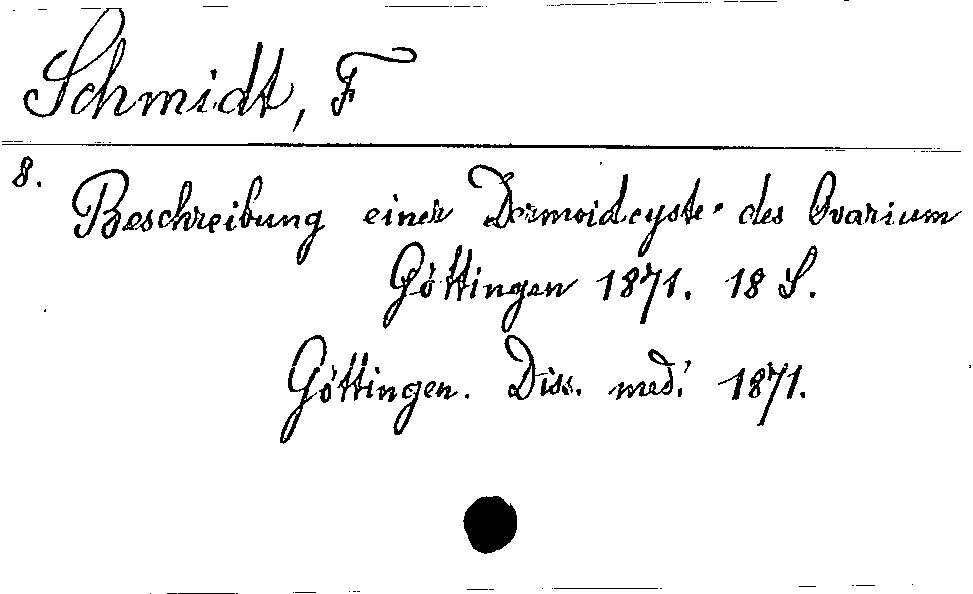 Schmidt, F
8.
Beschreibung einer Dermoidcyste des Ovarium
Göttingen 1871. 18 S.
Göttingen. Diss. med. 1871.